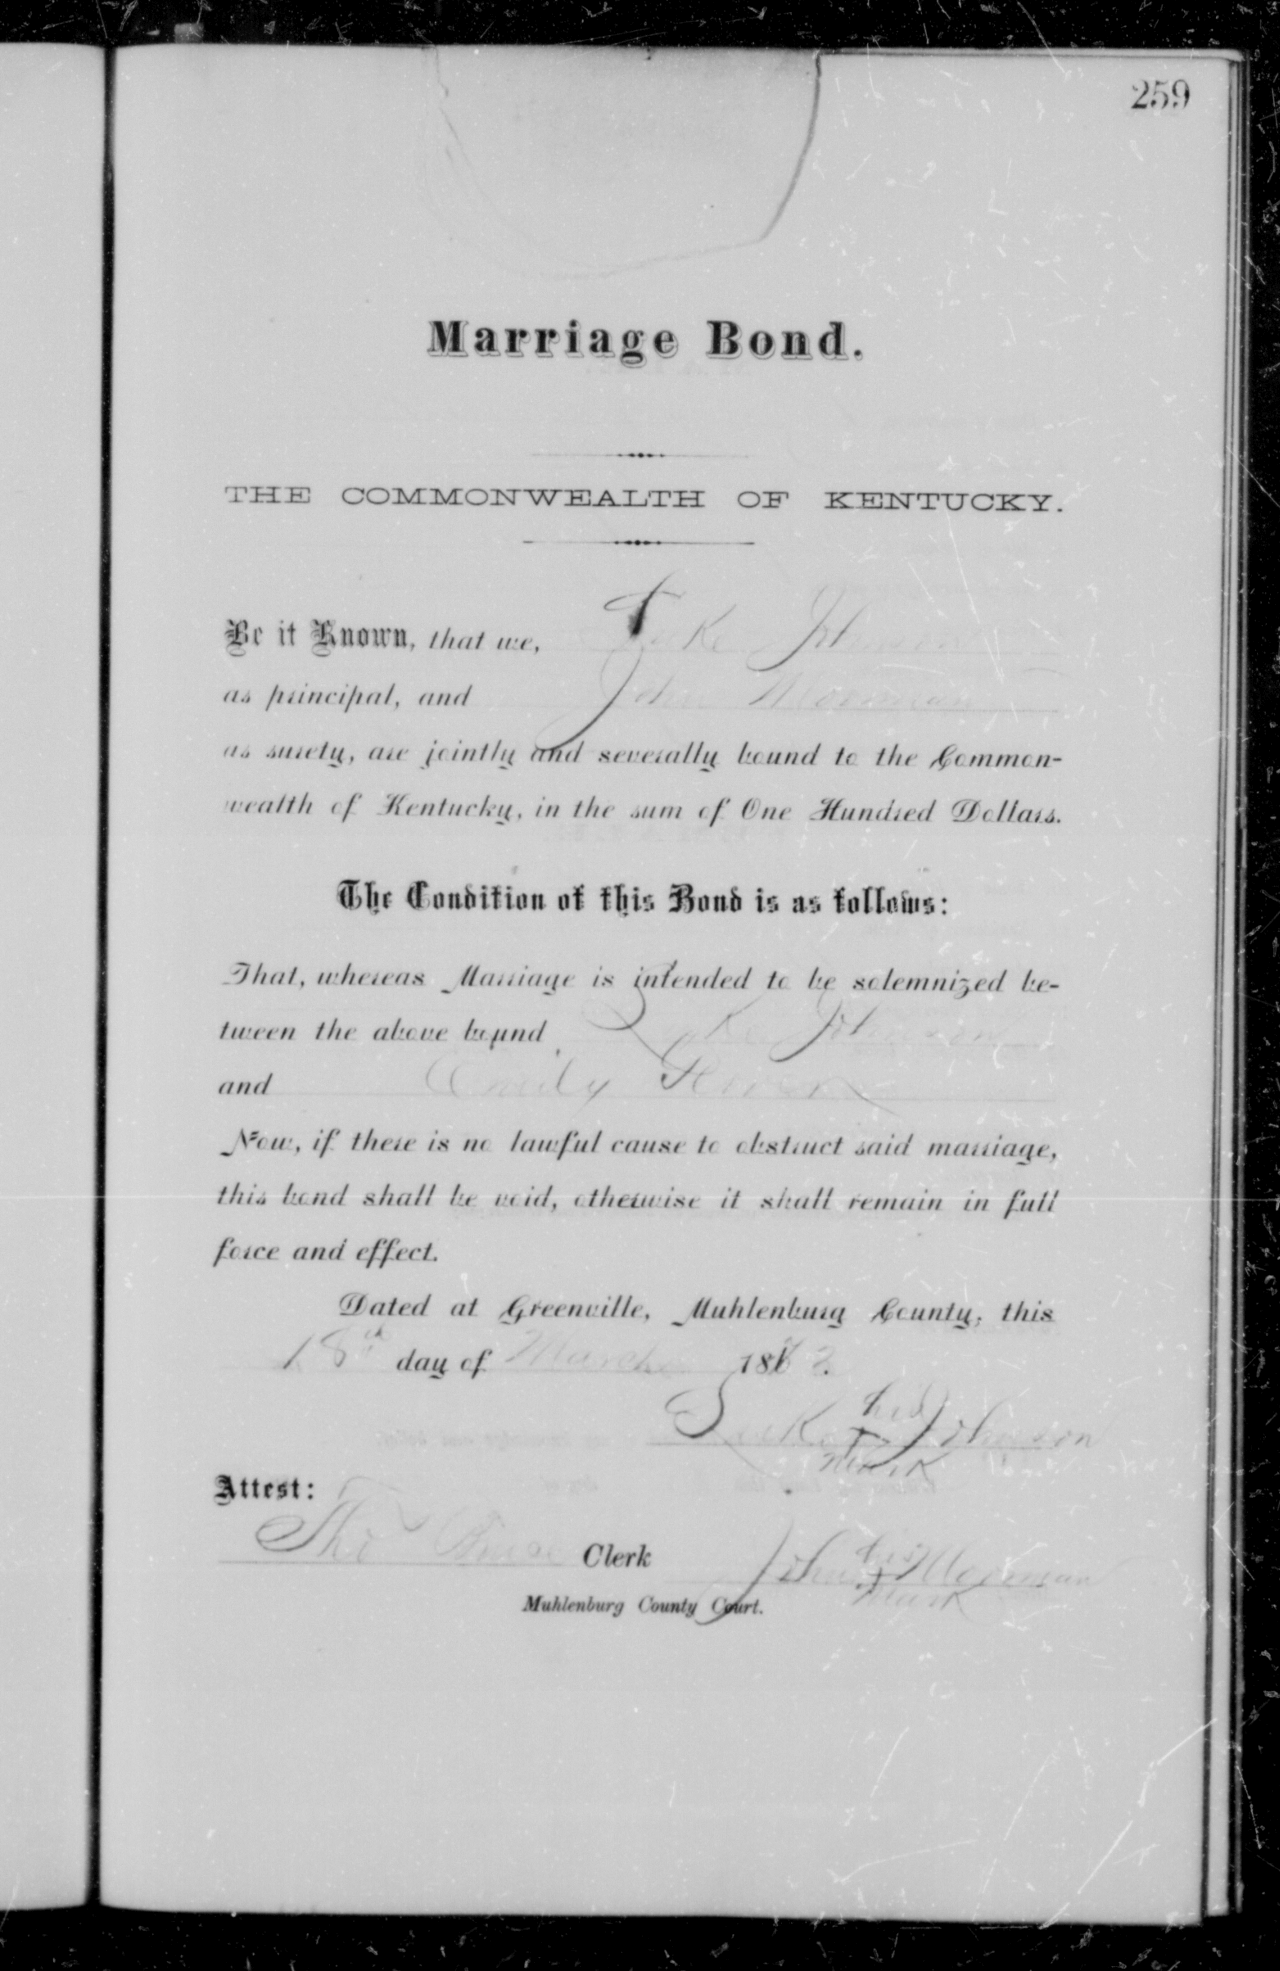 259
Marriage Bond.
THE COMMONWEALTH OF KENTUCKY.
Be it Known, that we, Johnson
as principal, and John Moorman
as surety, are jointly and severally bound to the Common-
wealth of Kentucky, in the sum of One Hundred Dollars.
The Condition of this Bond is as follows:
That, whereas Marriage is intended to be solemnized be-
tween the above bound Johnson
and Emily
Now, if there is no lawful cause to obstruct said marriage,
this bond shall be void, otherwise it shall remain in full
force and effect.
Dated at Greenville, Muhlenburg County, this
18th day of March 188
his
Johnson
mark
Attest:
Tho Clerk
his
John + Moorman
mark
Muhlenburg County Court.